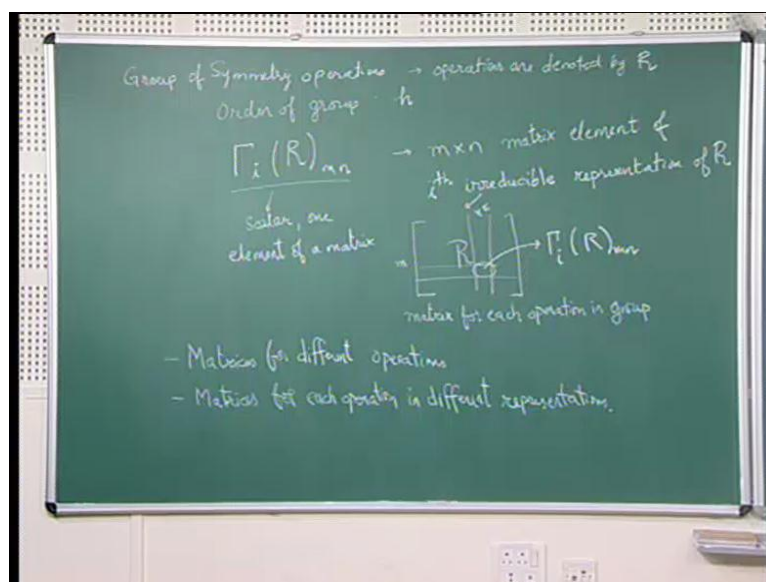 Group of Symmetry operations → operations are denoted by R
Order of group : h
Γi (R)mn → m×n matrix element of
ith irreducible representation of R
scalar, one
element of a matrix
m [ R ] → Γi (R)mn
matrix for each operation in group
- Matrices for different operations
- Matrices for each operation in different representations.